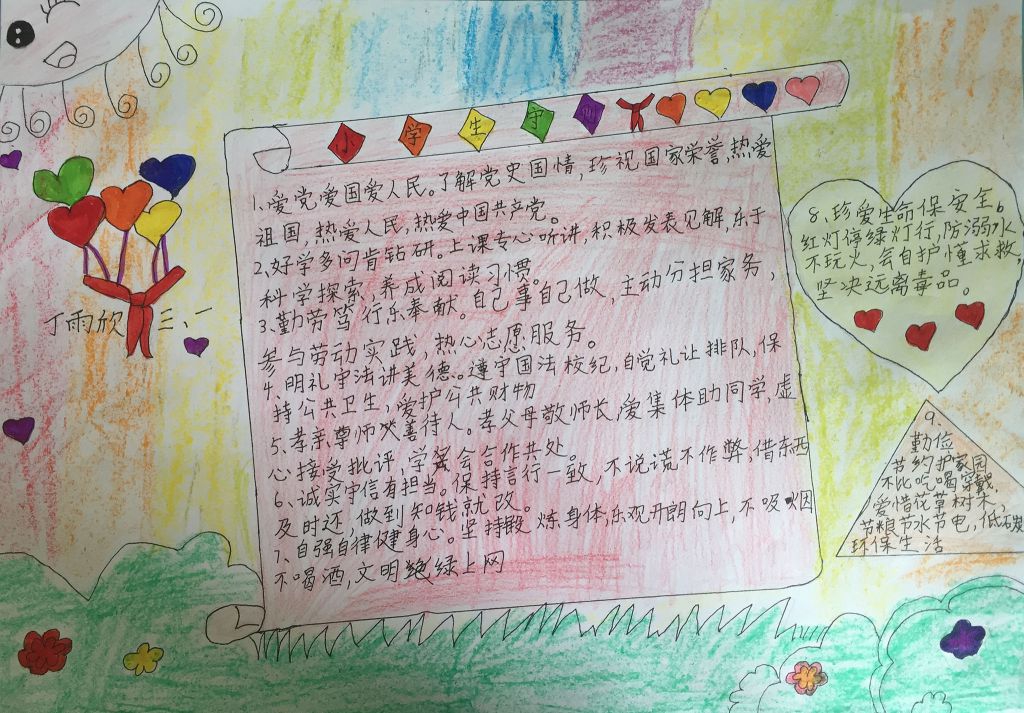 小学生守则
1、爱党爱国爱人民。了解党史国情,珍视国家荣誉,热爱
祖国,热爱人民,热爱中国共产党。
2、好学多问肯钻研。上课专心听讲,积极发表见解,乐于
科学探索,养成阅读习惯。
3、勤劳笃行乐奉献。自己事自己做,主动分担家务,
参与劳动实践,热心志愿服务。
4、明礼守法讲美德。遵守国法校纪,自觉礼让排队,保
持公共卫生,爱护公共财物
5、孝亲尊师善待人。孝父母敬师长,爱集体助同学,虚
心接受批评,学会合作共处。
6、诚实守信有担当。保持言行一致,不说谎不作弊,借东西
及时还,做到知钱就改。
7、自强自律健身心。坚持锻炼身体,乐观开朗向上,不吸烟
不喝酒,文明绝绿上网
丁雨欣 三、一
8、珍爱生命保安全。
红灯停绿灯行,防溺水
不玩火,会自护懂求救,
坚决远离毒品。
9、
勤俭
节约护家园
不比吃喝穿戴,
爱惜花草树木,
节粮节水节电,低碳
环保生活